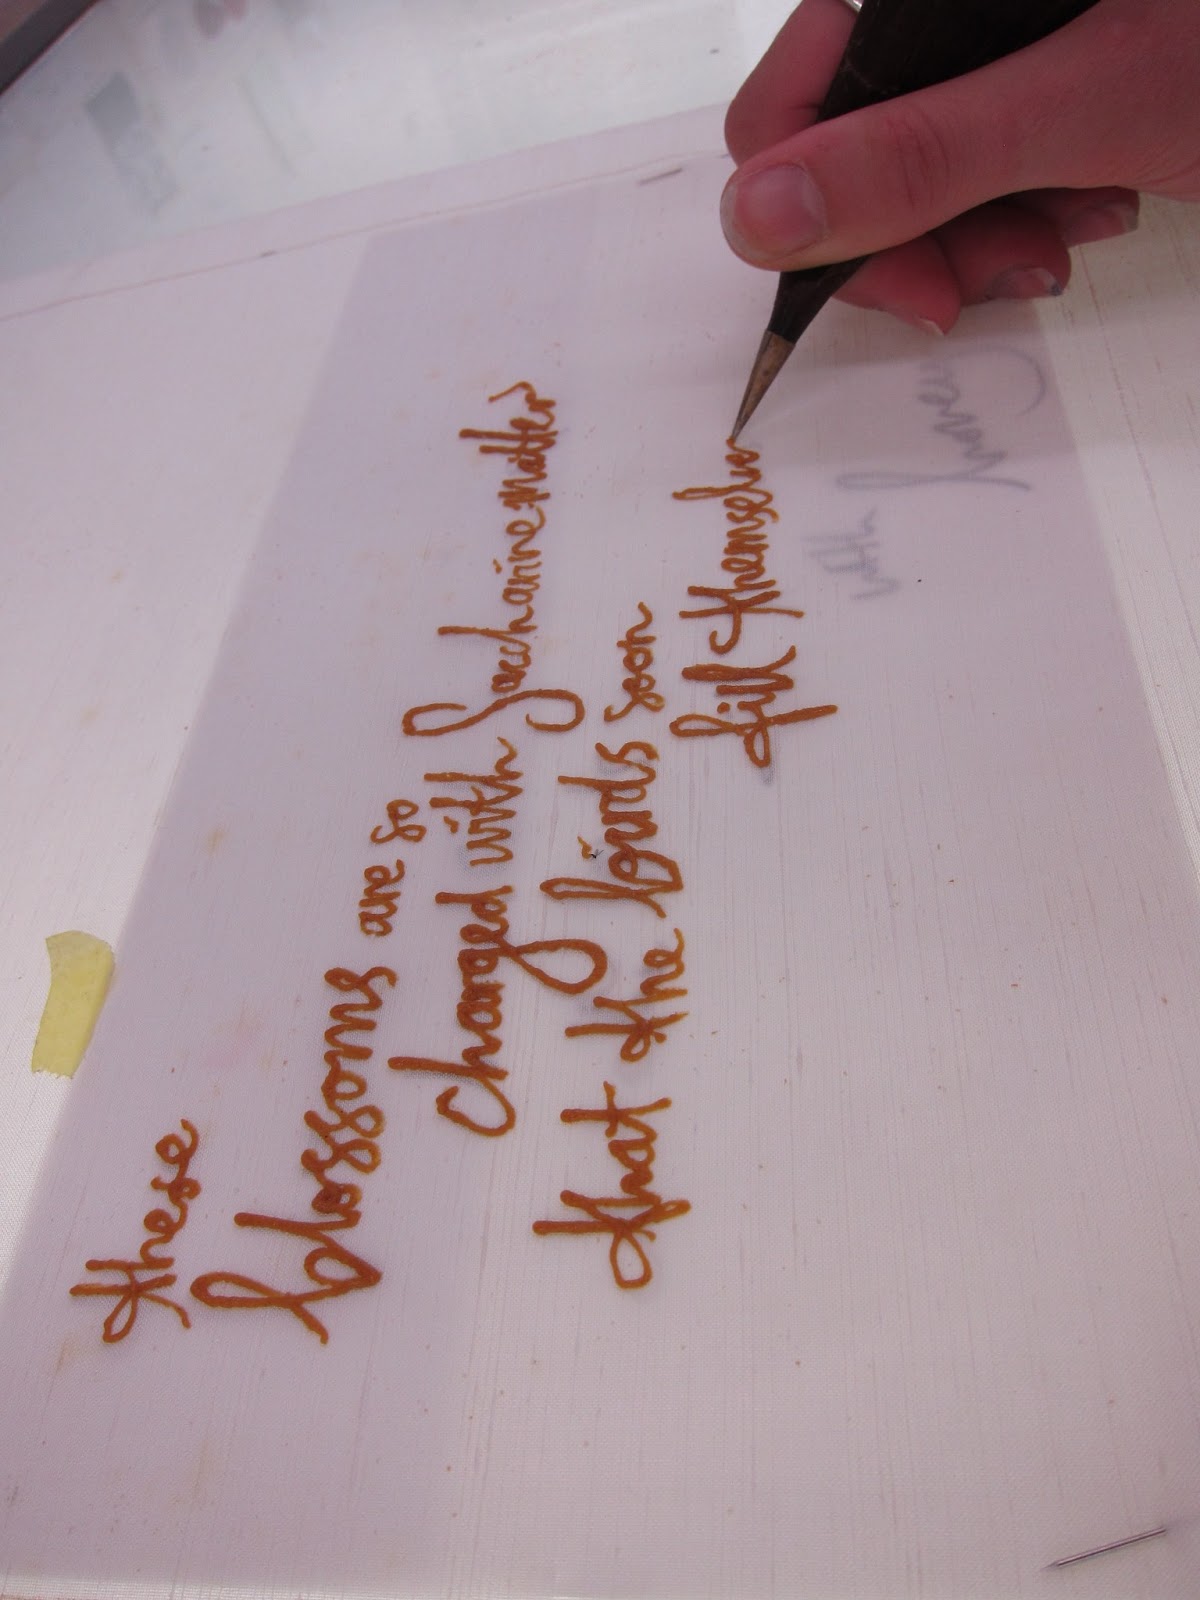 these
blossoms are so
charged with Saccharine matter
that the birds soon
fill themselve
with honey